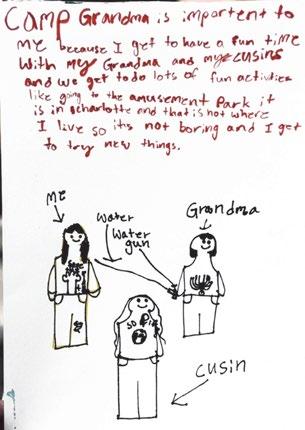 CAMP Grandma is importent to
me because I get to have a fun time
with my Grandma and my cusins
and we get todo lots of fun activities
like going to the amusement Park it
is in charlotte and that is not where
I live so it's not boring and I get
to try new things.
me
water
water
gun
Grandma
so
cusin